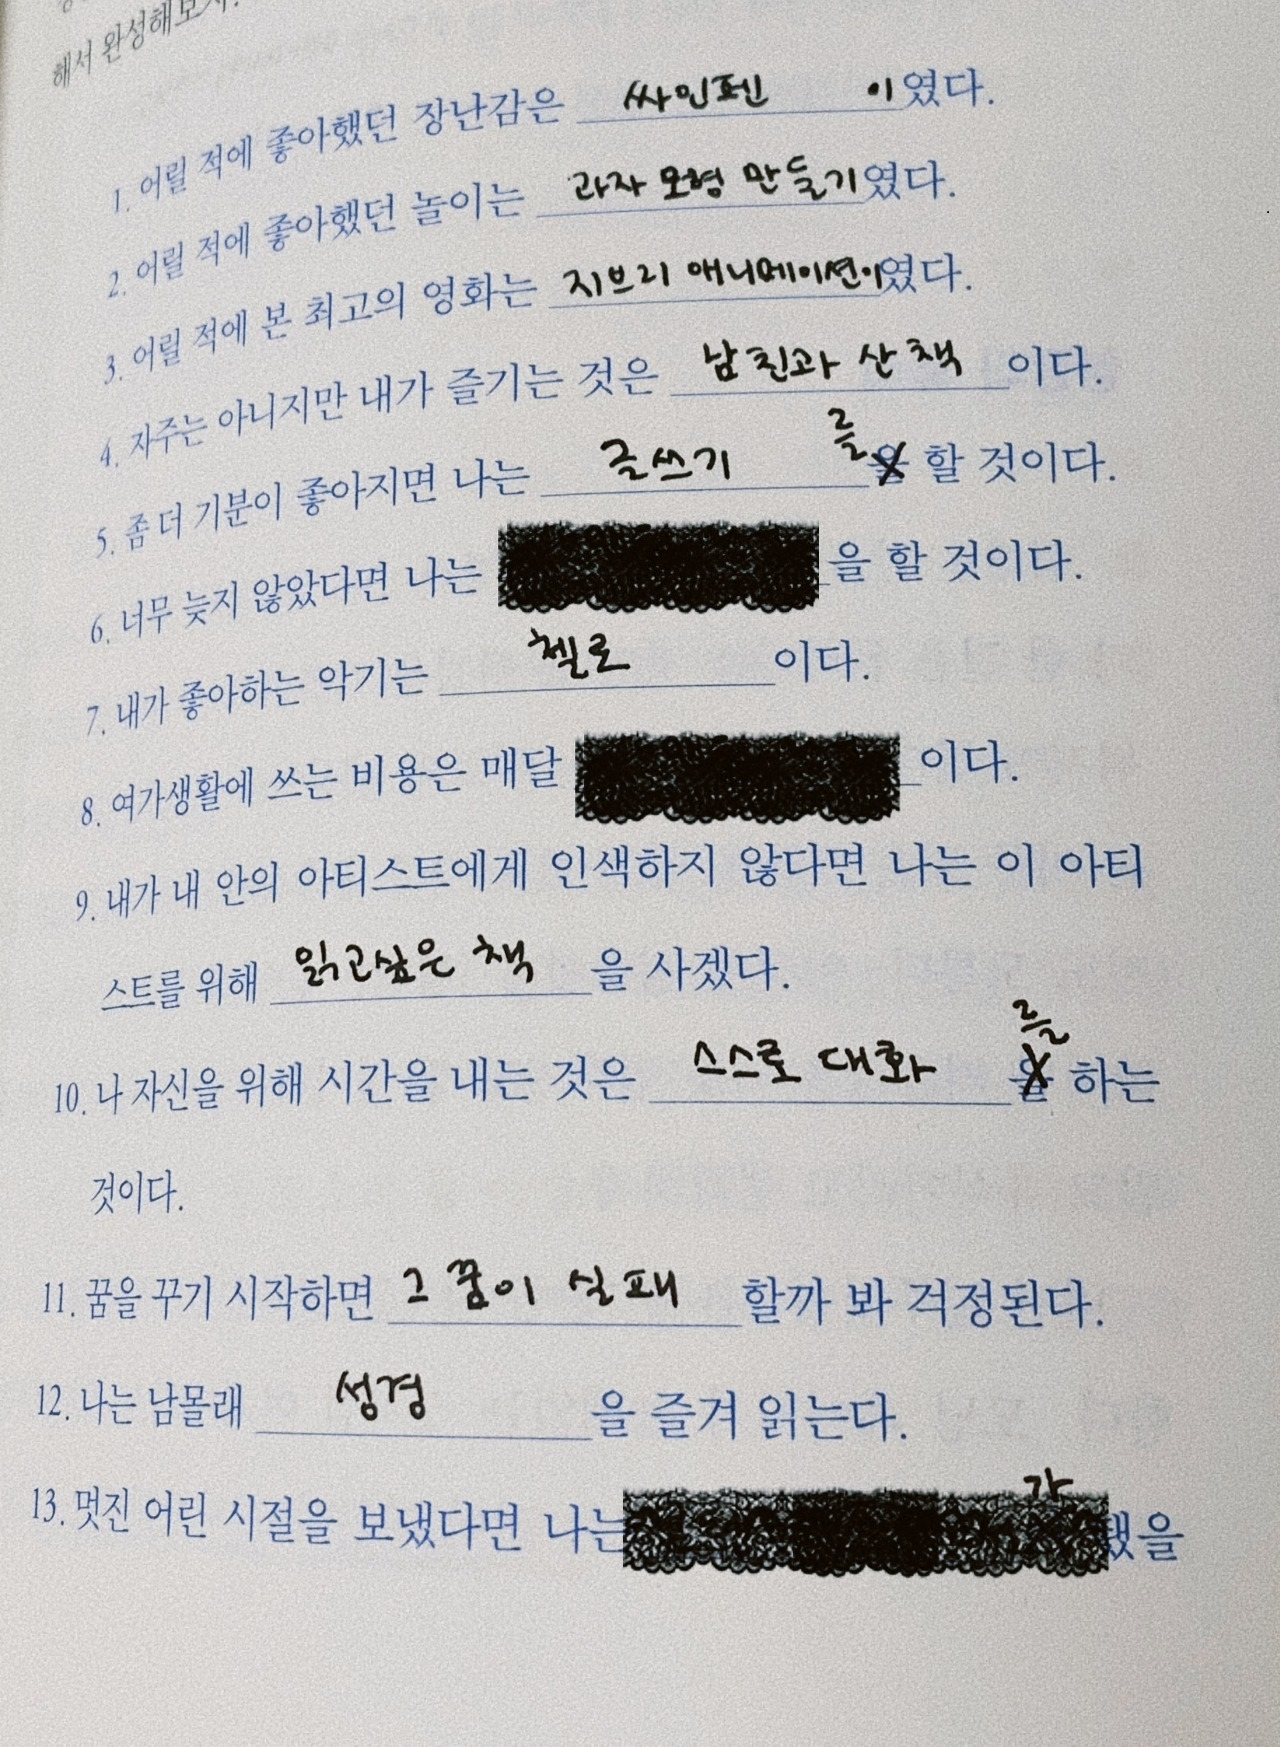 해서 완성해보자.
1. 어릴 적에 좋아했던 장난감은 싸인펜 이였다.
2. 어릴 적에 좋아했던 놀이는 과자 모형 만들기였다.
3. 어릴 적에 본 최고의 영화는 지브리 애니메이션이였다.
4. 자주는 아니지만 내가 즐기는 것은 남친과 산책 이다.
5. 좀 더 기분이 좋아지면 나는 글쓰기 를 을 할 것이다.
6. 너무 늦지 않았다면 나는 을 할 것이다.
7. 내가 좋아하는 악기는 첼로 이다.
8. 여가생활에 쓰는 비용은 매달 이다.
9. 내가 내 안의 아티스트에게 인색하지 않다면 나는 이 아티
스트를 위해 읽고싶은 책 을 사겠다.
10. 나 자신을 위해 시간을 내는 것은 스스로 대화 를 을 하는
것이다.
11. 꿈을 꾸기 시작하면 그 꿈이 실패 할까 봐 걱정된다.
12. 나는 남몰래 성경 을 즐겨 읽는다.
13. 멋진 어린 시절을 보냈다면 나는 가 됐을